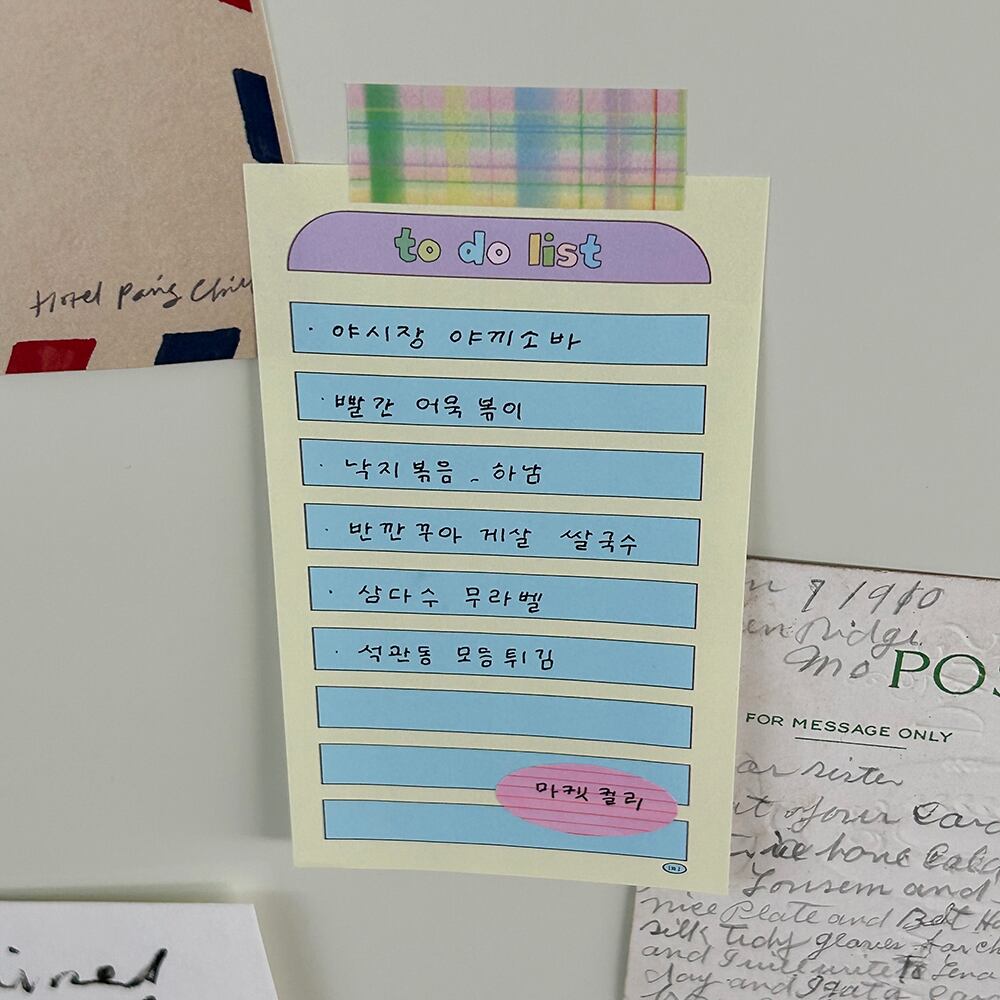 Hotel Paris
to do list
· 야시장 야끼소바
· 빨간 어묵 볶이
· 낙지볶음 - 하남
· 반깐꾸아 게살 쌀국수
· 삼다수 무라벨
· 석관동 모듬튀김
마켓컬리
9 1910
Ridge
Mo
POS
FOR MESSAGE ONLY
sister
of your Card
home
and
nice Plate and
silk tidy gloves for
and I will write to Lena
day and
ined